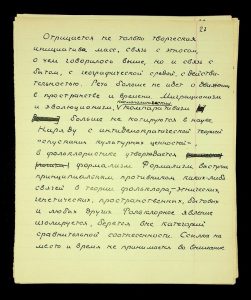 22
Отрицается не только творческая
инициатива масс, связь с эпосом,
о чем говорилось выше, но и связь с
бытом, с географической средой, с действи-
тельностью. Речи больше не идет о движении
в пространстве и времени. Миграционизм
и эволюционизм, компаративизм
больше не котируются в науке.
Наряду с антидемократической теорией
"опускания культурных ценностей"
в фольклористике утверждается
формализм. Формализм выступил
принципиальным противником каких-либо
связей в теории фольклора – этнических,
генетических, пространственных, бытовых
и любых других. Фольклорное явление
изолируется, берется вне категорий
сравнительной соотнесенности. Ссылка на
место и время не принимается во внимание.